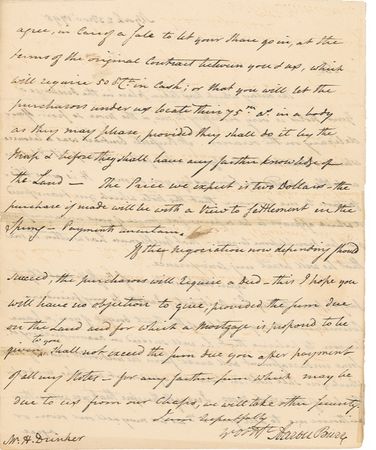 agree, in Case of a Sale to let your Share go in, at the
terms of the original Contract between you & us, which
will require 50 in Cash; or that you will let the
purchasers under us locate their 75 in a body
as they may please, provided they shall do it by the
Map & before they shall have any further Knowledge of
the Land — The Price we expect is two Dollars — the
purchase if made will be with a View to settlement in the
Spring — Payments uncertain.
If the Negociation now depending should
succeed, the purchasers will require a deed — this I hope you
will have no objection to give, provided the sum due
on the Land and for which a Mortgage is proposed to be
given to you shall not exceed the sum due you after payment
of all my Notes — for any further sum which may be
due to us from our we will take other security.
I am respectfully
Aaron Burr
Mr. H. Drinker